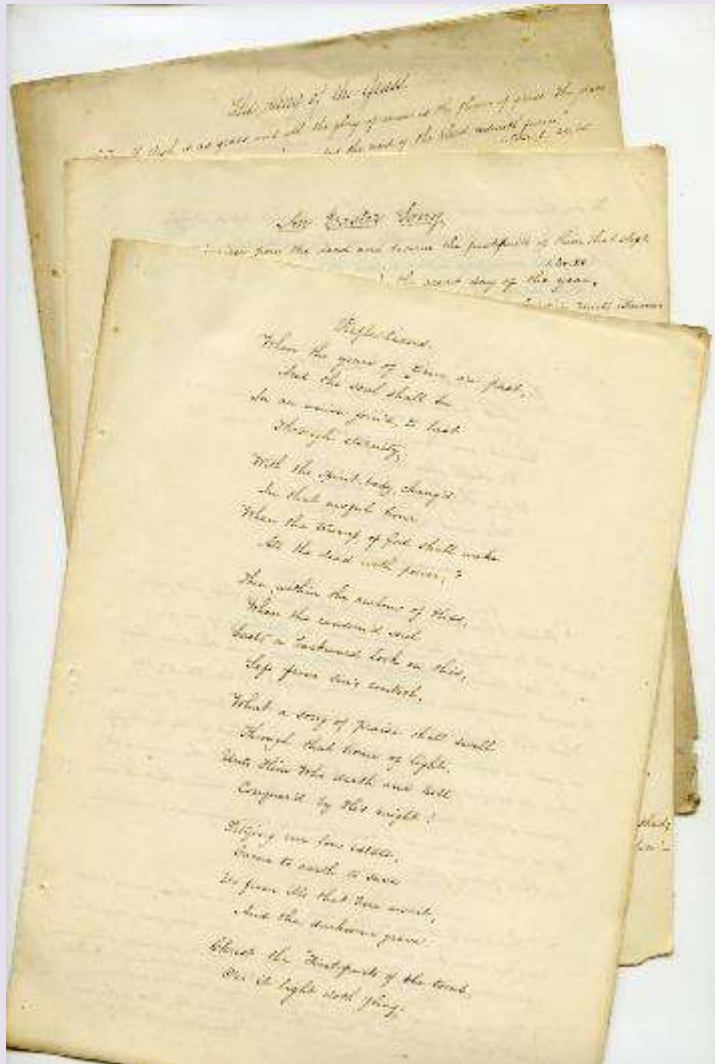 The voice of the Grass.
flesh is as grass and all the glory of man as the flower of grass. The grass
the word of the Lord endureth forever."
An Easter Song
risen from the dead and become the firstfruits of them that slept
the next day of the year,
Reflections.
When the years of Time are past,
And the soul shall be
In an union join'd, to last
Through eternity,
With the spirit-body, chang'd
In that awful hour
When the trump of God shall wake
All the dead with power;
Then, within the realms of bliss,
When the ransom'd soul
Casts a backward look on this,
Safe from sin's control,
What a song of praise shall swell
Through that home of light,
Unto Him Who death and hell
Conquer'd by His might!
Pitying our low estate,
Came to earth to save
Us from ills that here await,
And the darksome grave.
Christ the Firstfruits of the tomb,
On it light doth fling;